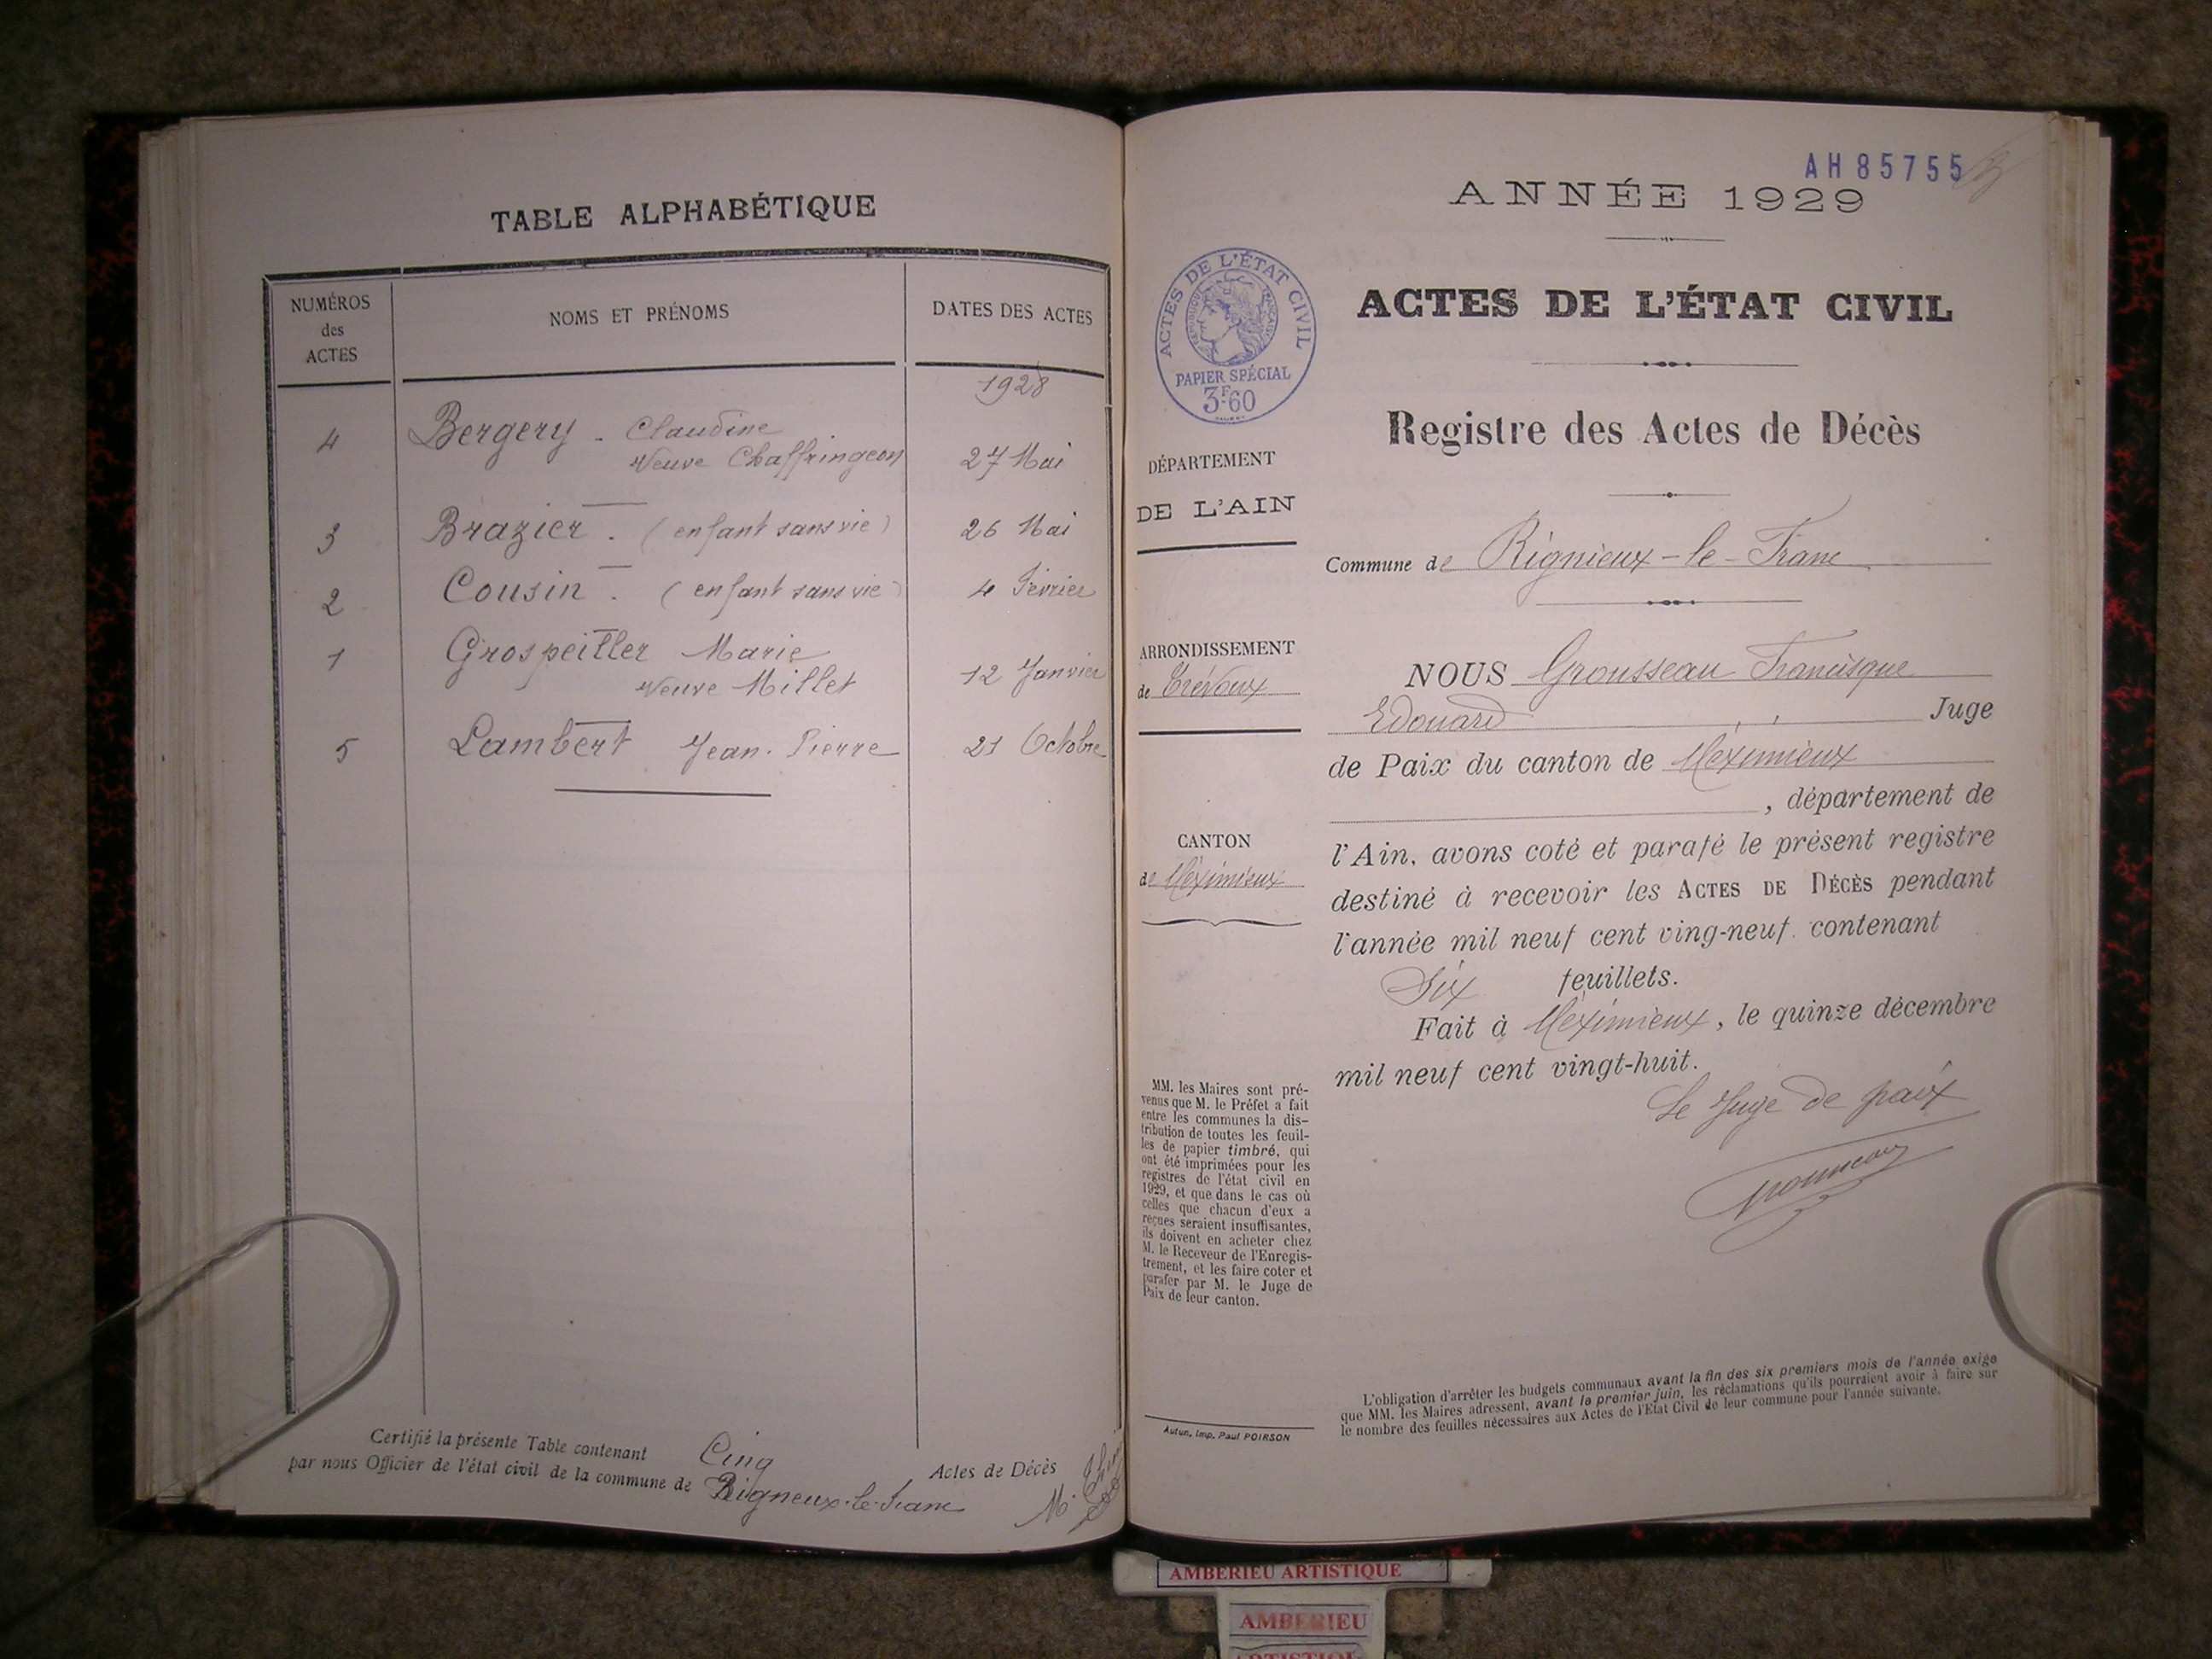 TABLE ALPHABÉTIQUE
NUMÉROS
des
ACTES
NOMS ET PRÉNOMS
DATES DES ACTES
1928
4 Bergery - Claudine
Veuve Chaffringeon 27 Mai
3 Brazier . (enfant sans vie) 26 Mai
2 Cousin . (enfant sans vie) 4 Février
1 Grospeiller Marie
Veuve Millet 12 Janvier
5 Lambert Jean-Pierre 21 Octobre
Certifié la présente Table contenant Cinq Actes de Décès
par nous Officier de l'état civil de la commune de Rigneux-le-Franc
AH85755
ANNÉE 1929
ACTES DE L'ÉTAT CIVIL
RÉPUBLIQUE FRANÇAISE
PAPIER SPÉCIAL
3F60
ACTES DE L'ÉTAT CIVIL
Registre des Actes de Décès
DÉPARTEMENT
DE L'AIN
Commune de Rignieux-le-Franc
ARRONDISSEMENT
de Trévoux
CANTON
de Méximieux
NOUS Grousseau Francisque
Edouard Juge
de Paix du canton de Méximieux
, département de
l'Ain, avons coté et parafé le présent registre
destiné à recevoir les ACTES DE DÉCÈS pendant
l'année mil neuf cent ving-neuf. contenant
Six feuillets.
Fait à Méximieux, le quinze décembre
mil neuf cent vingt-huit.
Le Juge de paix
MM. les Maires sont pré-
venus que M. le Préfet a fait
entre les communes la dis-
tribution de toutes les feuil-
les de papier timbré, qui
ont été imprimées pour les
registres de l'état civil en
1929, et que dans le cas où
celles que chacun d'eux a
reçues seraient insuffisantes,
ils doivent en acheter chez
M. le Receveur de l'Enregis-
trement, et les faire coter et
parafer par M. le Juge de
Paix de leur canton.
Autun, Imp. Paul POIRSON
L'obligation d'arrêter les budgets communaux avant la fin des six premiers mois de l'année exige
que MM. les Maires adressent, avant le premier juin, les réclamations qu'ils pourraient avoir à faire sur
le nombre des feuilles nécessaires aux Actes de l'Etat Civil de leur commune pour l'année suivante.
AMBERIEU ARTISTIQUE
AMBERIEU
ARTISTIQUE